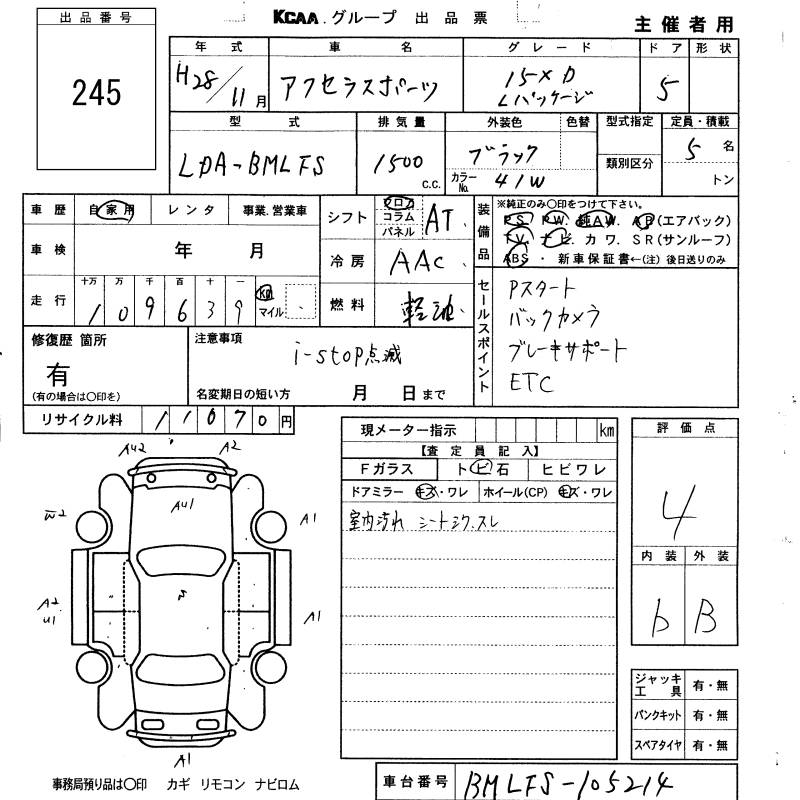 KCAA.グループ 出品票
主催者用
出品番号
245
年式 車名 グレード ドア 形状
H28/11月 アクセラスポーツ 15XD Lパッケージ 5
型式 排気量 外装色 色替 型式指定 定員・積載
LDA-BMLFS 1500 c.c. ブラック カラーNo. 41W 類別区分 5名 トン
車歴 自家用 レンタ 事業.営業車
車検 年 月
走行 十万 万 千 百 十 一
1 0 9 6 3 9 km マイル
シフト フロア コラム パネル AT
冷房 AAC
燃料 軽油
装備品
※純正のみ〇印をつけて下さい。
PS. PW. 純AW. AB(エアバック)
TV. ナビ. カワ. SR(サンルーフ)
ABS ・ 新車保証書←(注)後日送りのみ
セールスポイント
Pスタート
バックカメラ
ブレーキサポート
ETC
修復歴 箇所
有
(有の場合は〇印を)
注意事項
i-stop点滅
名変期日の短い方 月 日まで
リサイクル料 11070円
現メーター指示 km
【査定員記入】
Fガラス トビ石 ヒビワレ
ドアミラー キズ・ワレ ホイール(CP) キズ・ワレ
室内汚れ シートシワ.スレ
評価点
4
内装 外装
b B
AU2 A2
AU1
A1
A2
U1
A1
A1
ジャッキ工具 有・無
パンクキット 有・無
スペアタイヤ 有・無
事務局預り品は〇印 カギ リモコン ナビロム
車台番号 BMLFS-105214